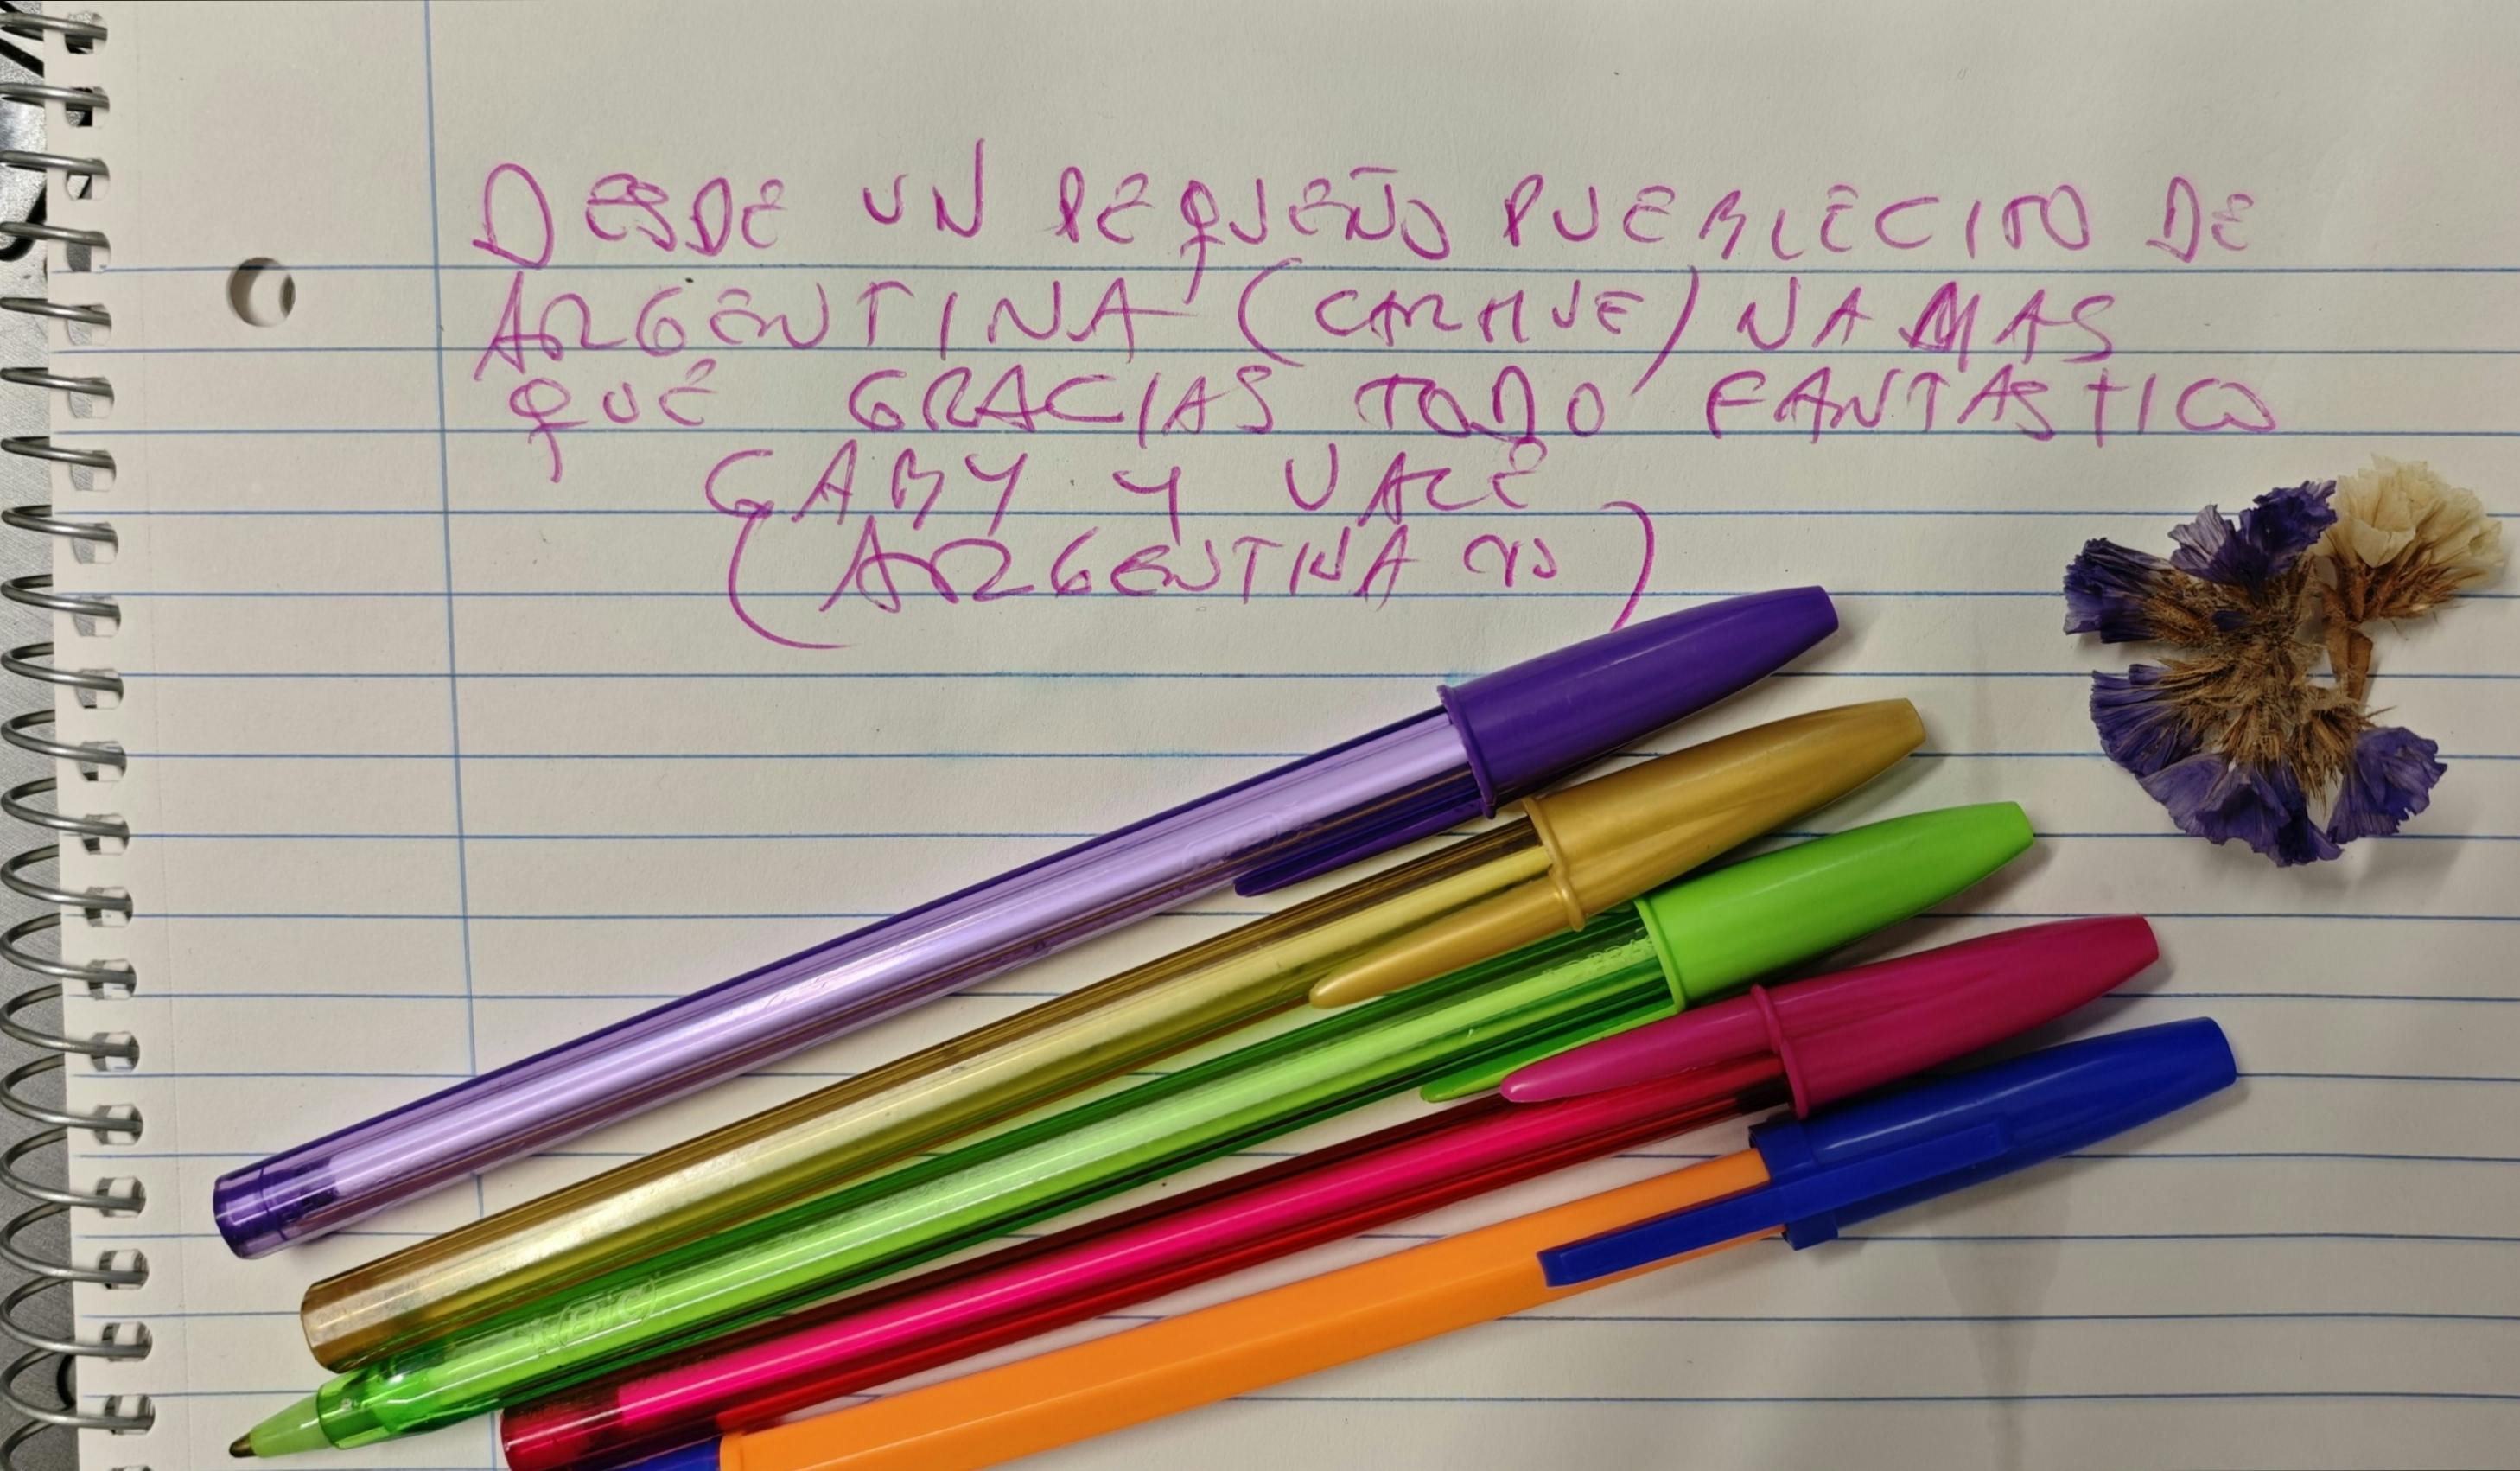 DESDE UN PEQUEÑO PUEBLECITO DE
ARGENTINA (CARHUE) NA MAS
QUE GRACIAS TODO FANTASTICO
GABY Y VALE
(ARGENTINA
BIC